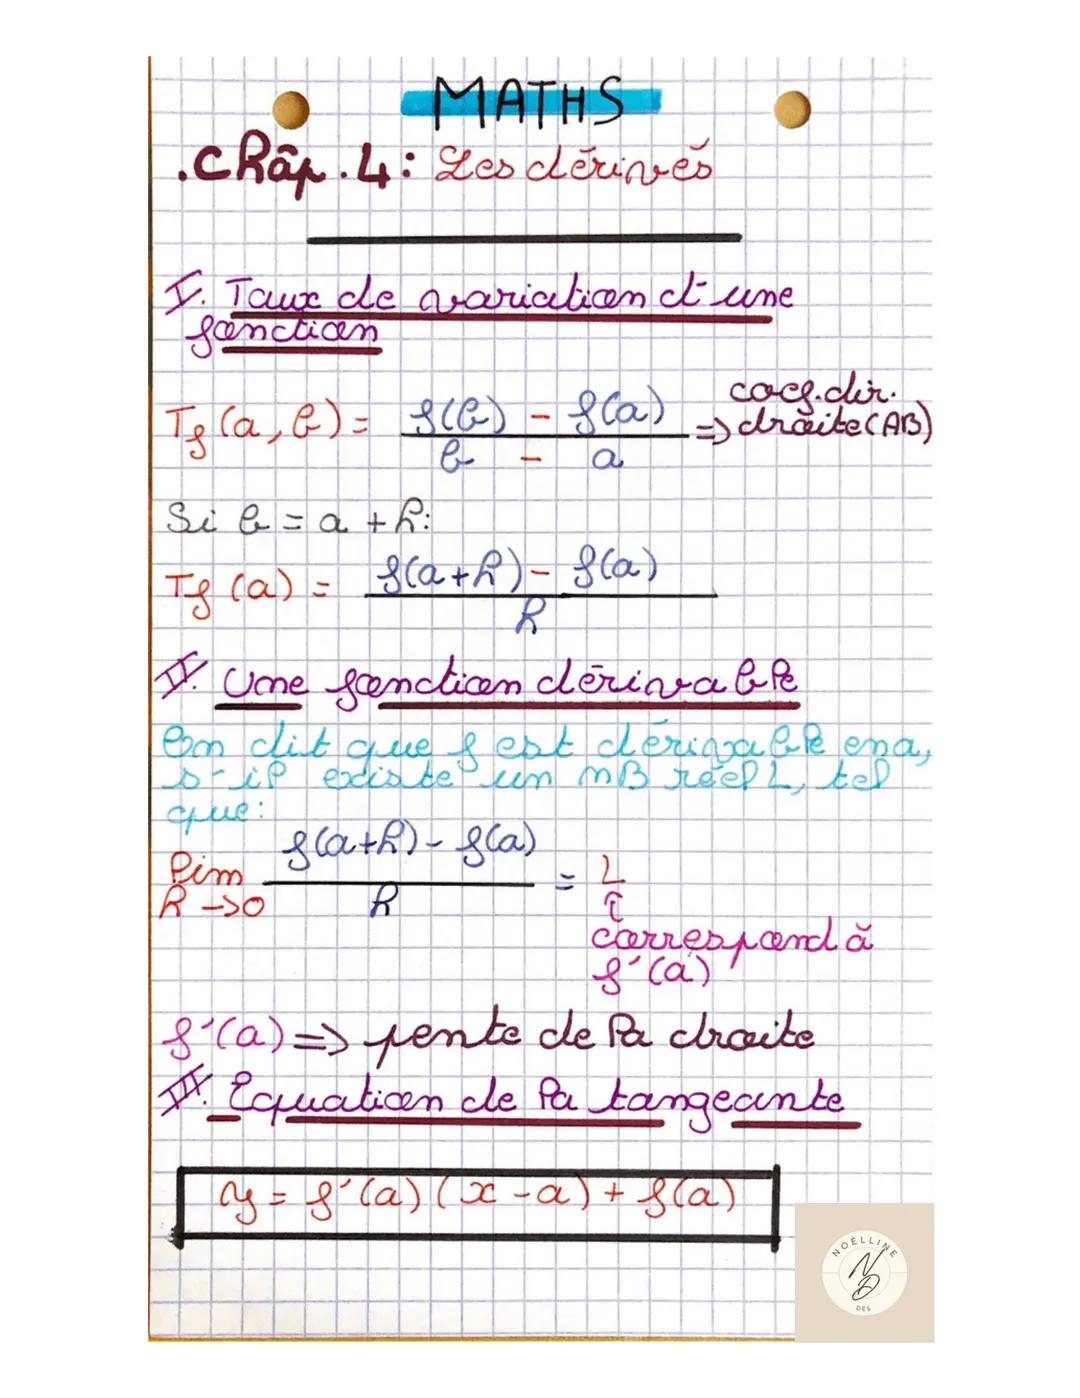 MATHS
.Chap.4: Les dérivés
I. Taux de variation d'une
fonction
Tf (a, b) = f(b) - f(a) / b - a => coef.dir. droite (AB)
Si b = a + h:
Tf (a) = f(a+h) - f(a) / h
II. Une fonction dérivable
On dit que f est dérivable en a,
s'il existe un nB réel L, tel
que:
lim h ->0 f(a+h) - f(a) / h = L
↑
correspond à
f'(a)
f'(a) => pente de la droite
III. Equation de la tangeante
y = f'(a) (x - a) + f(a)
NOËLLINE
ND
DES